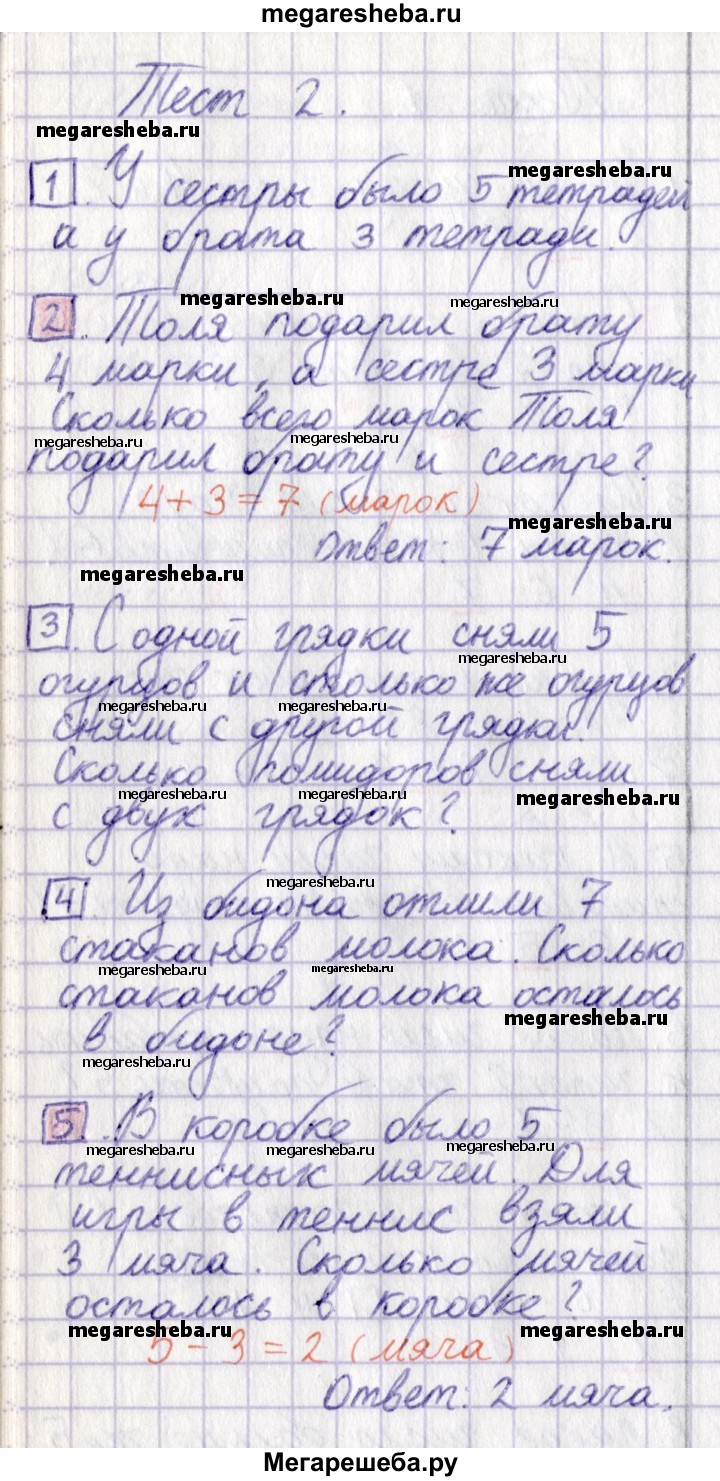 megaresheba.ru
Тест 2.
megaresheba.ru
megaresheba.ru
1. У сестры было 5 тетрадей
а у брата 3 тетради.
megaresheba.ru
megaresheba.ru
2. Толя подарил брату
4 марки, а сестре 3 марки
Сколько всего марок Толя
megaresheba.ru
megaresheba.ru
подарил брату и сестре?
4 + 3 = 7 (марок)
megaresheba.ru
Ответ: 7 марок.
megaresheba.ru
3. С одной грядки сняли 5
megaresheba.ru
огурцов и столько же огурцов
megaresheba.ru
megaresheba.ru
сняли с другой грядки.
Сколько помидоров сняли
megaresheba.ru
megaresheba.ru
megaresheba.ru
с двух грядок?
megaresheba.ru
4. Из бидона отлили 7
стаканов молока. Сколько
megaresheba.ru
megaresheba.ru
стаканов молока осталось
megaresheba.ru
в бидоне?
megaresheba.ru
5. В коробке было 5
megaresheba.ru
megaresheba.ru
megaresheba.ru
теннисных мячей. Для
игры в теннис взяли
3 мяча. Сколько мячей
осталось в коробке?
megaresheba.ru
megaresheba.ru
5 - 3 = 2 (мяча)
Ответ: 2 мяча.
Мегарешеба.ру